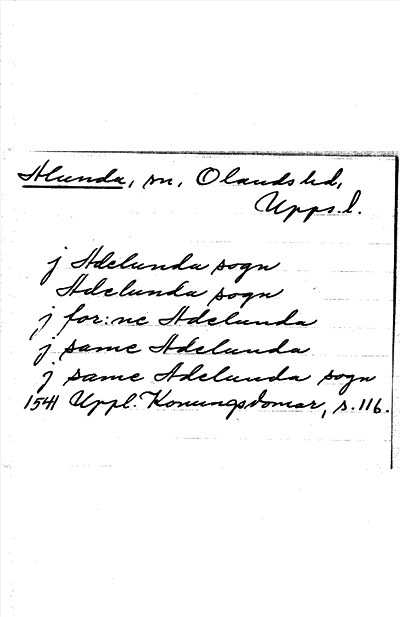 Alunda, sn, Olands hd,
Upps. l.
j Adelunda sogn
Adelunda sogn
j for:ne Adelunda
j same Adelunda
j same Adelunda sogn
1541 Uppl. Konungsdomar, s. 116.